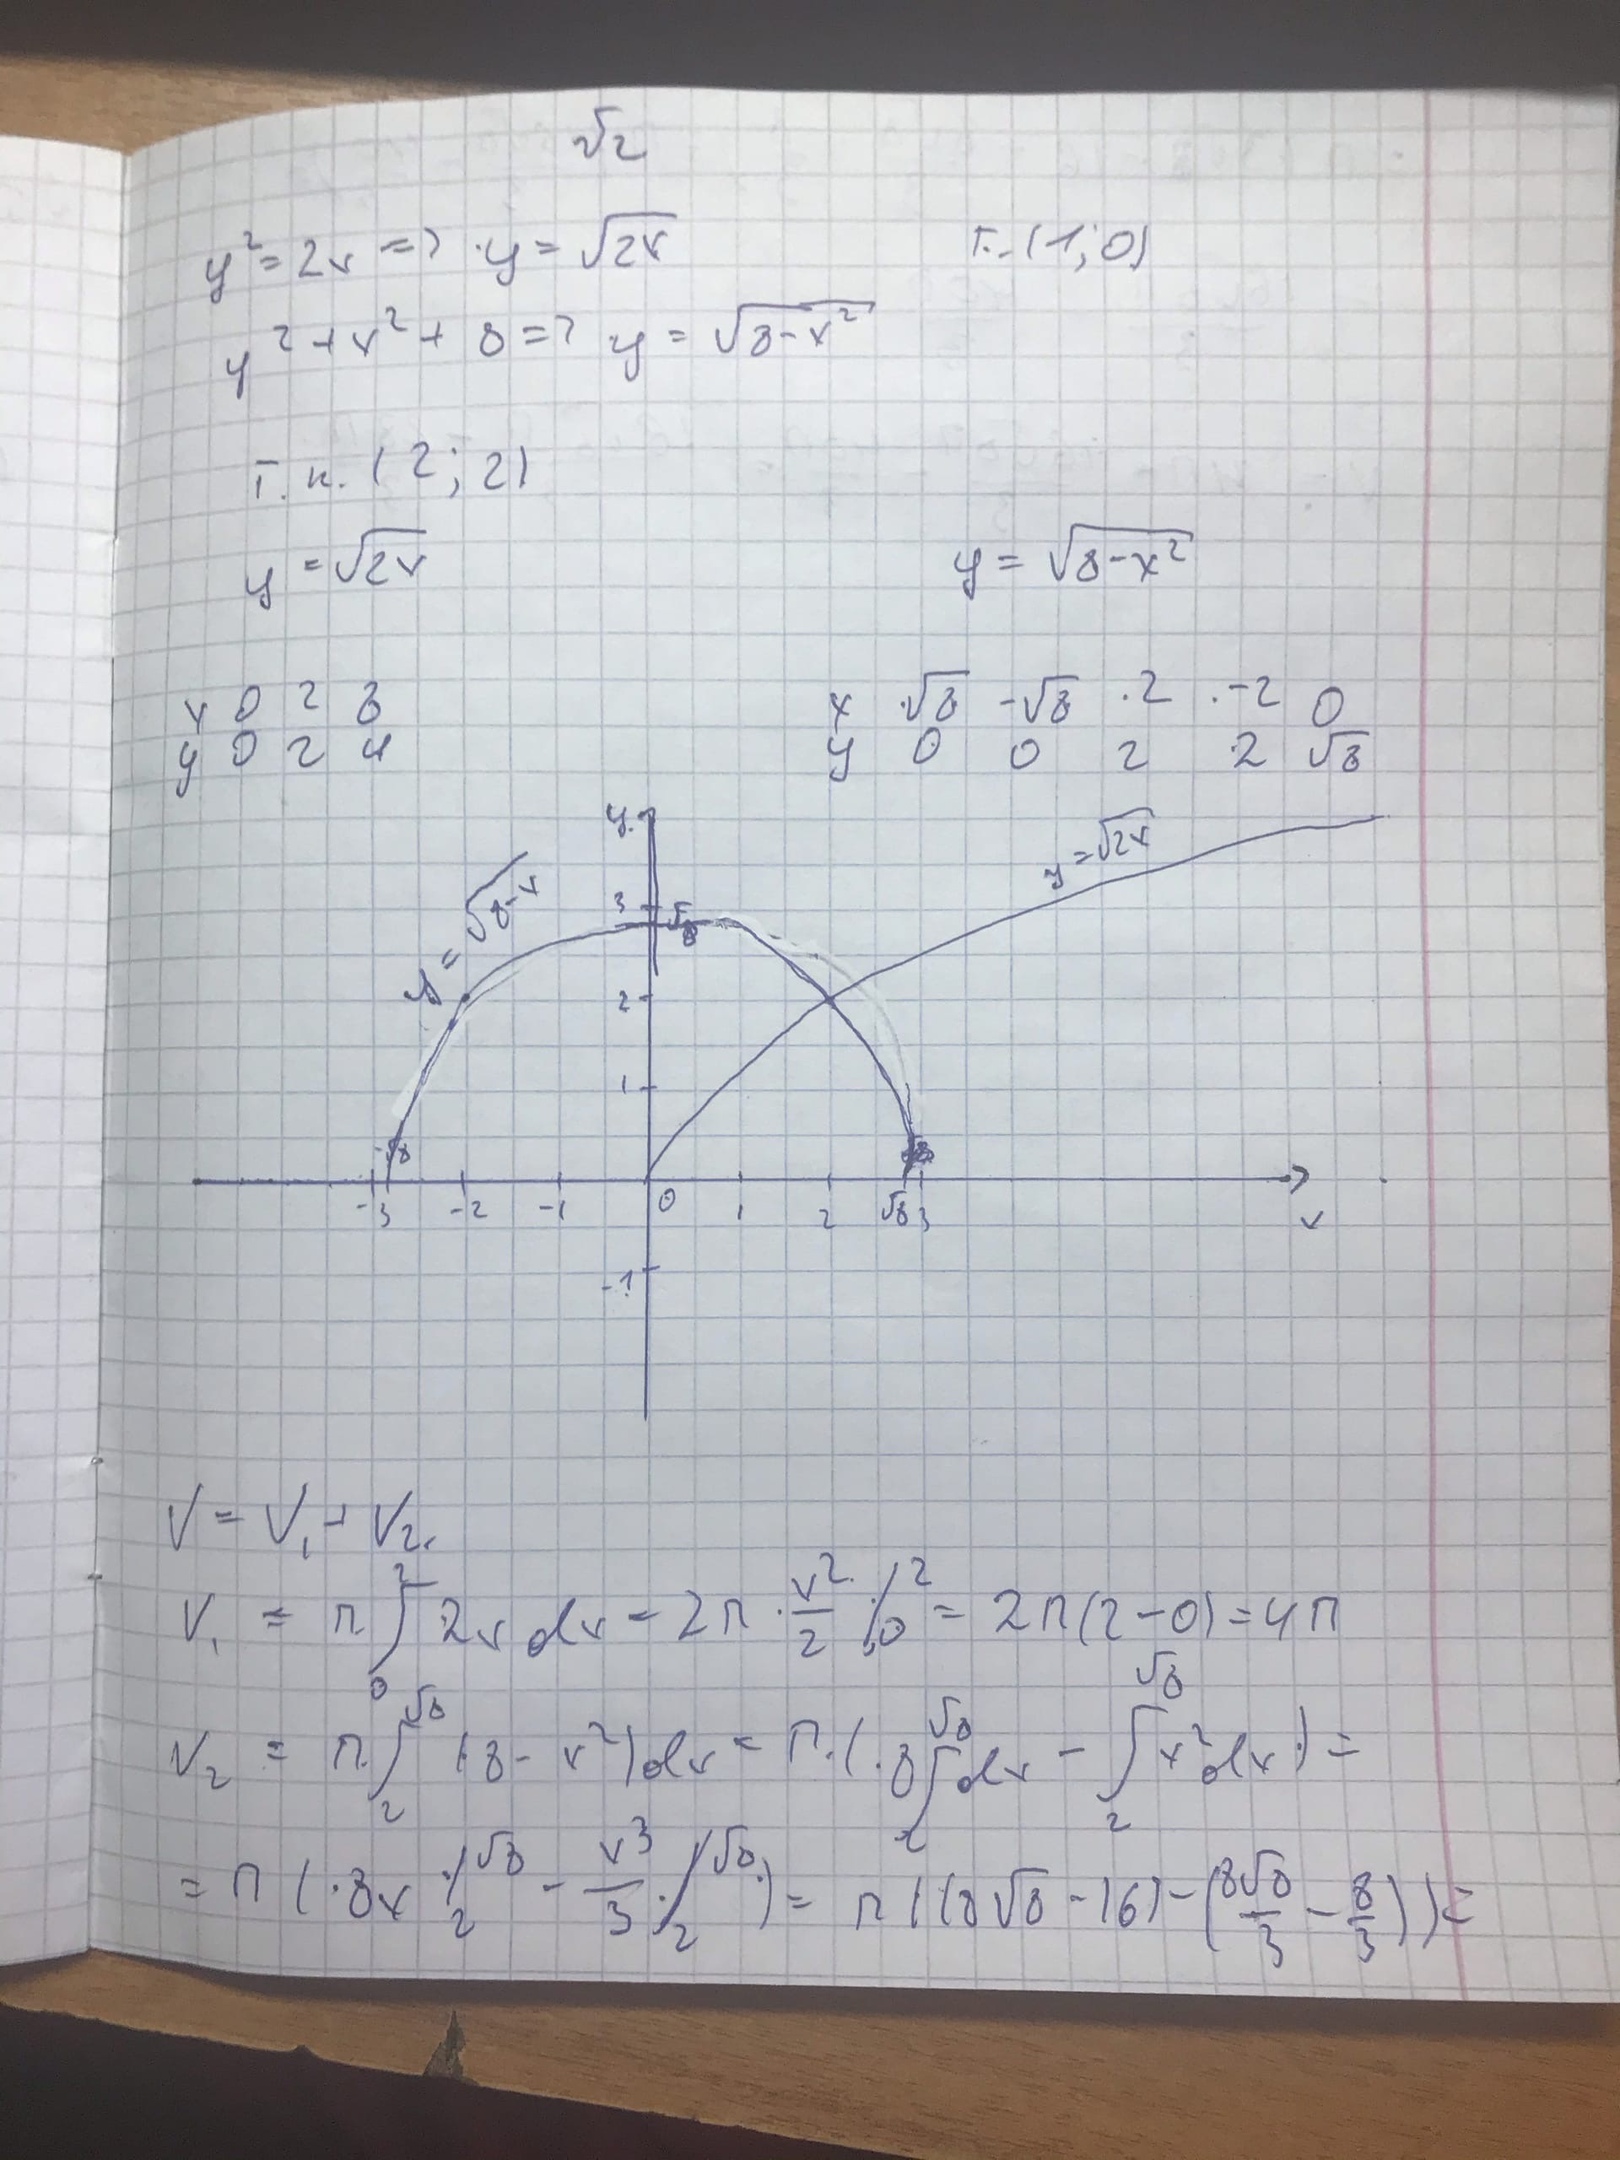 √2
y² = 2x => y = √2x т. (1; 0)
y² + x² + 8 => y = √8-x²
т. к. (2; 2)
y = √2x y = √8-x²
x 0 2 8 x √8 -√8 2 -2 0
y 0 2 4 y 0 0 2 2 √8
y
y = √2x
y = √8-x
3 √8
2
1
-√8 √8
-3 -2 -1 0 1 2 √8 3 x
-1
V = V₁ + V₂.
V₁ = π ∫₀² 2x dx = 2π · x²/2 /₀² = 2π(2-0) = 4π
V₂ = π ∫₂^√8 (8 - x²)dx = π · (8 ∫₂^√8 dx - ∫₂^√8 x²dx) =
= π (8x /₂^√8 - x³/3 /₂^√8) = π ((8√8 - 16) - (8√8/3 - 8/3)) =